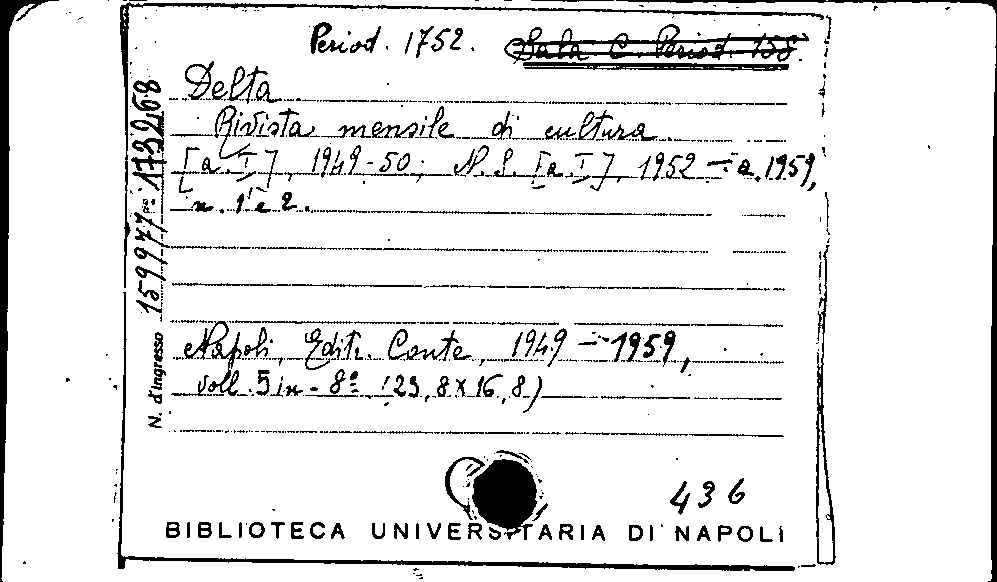 Period. 1752. Sala C. Period. 158.
Delta
Rivista mensile di cultura
[a. I], 1949-50; N. S. [a. I], 1952 - a. 1959,
n. 1 e 2.
Napoli, Editr. Conte, 1949 - 1959,
voll. 5 in-8º (23,8 x 16,8)
N. d'Ingresso 159977 = 173268
436
BIBLIOTECA UNIVERSITARIA DI NAPOLI